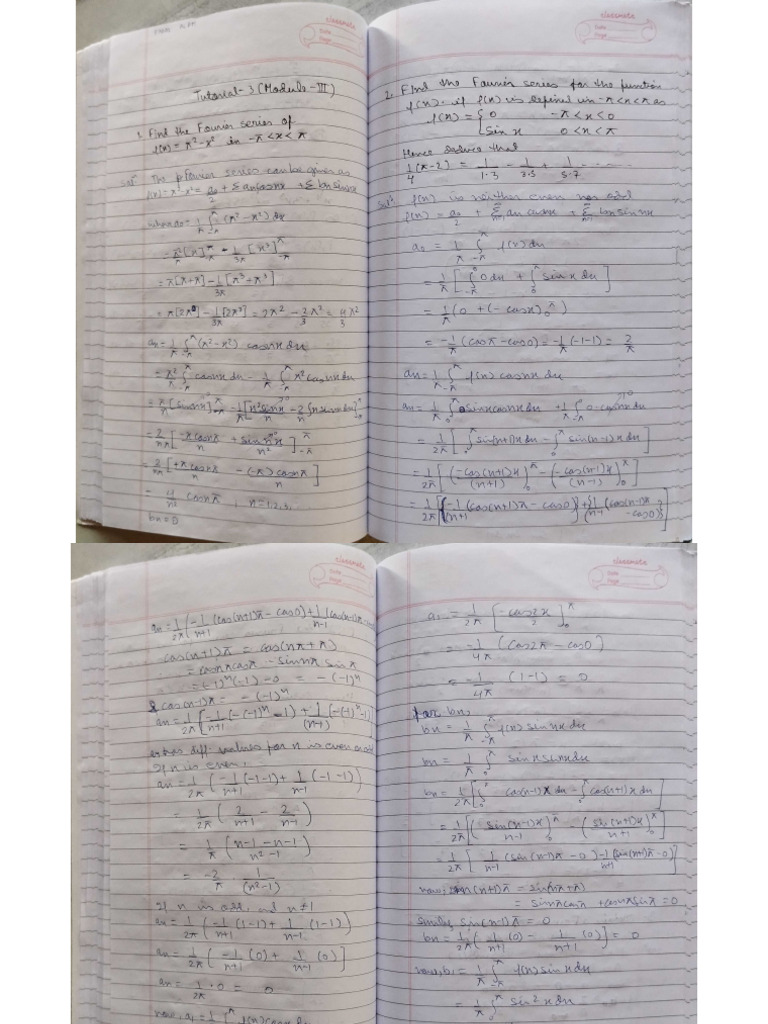 classmate
Date
Page
Tutorial-3 (Module-III)
1. Find the Fourier series of
f(x) = π²-x² in -π<x<π
Solⁿ The Fourier series can be given as
f(x) = π²-x² = a₀/2 + Σ an cosnx + Σ bn sinnx
where a₀ = 1/π ∫-π^π (π²-x²) dx
= π²/π [x]-π^π - 1/3π [x³]-π^π
= π[π+π] - 1/3π [π³+π³]
= π[2π] - 1/3π [2π³] = 2π² - 2/3 π² = 4/3 π²
an = 1/π ∫-π^π (π²-x²) cosnx dx
= π²/π ∫-π^π cosnx dx - 1/π ∫-π^π x² cosnx dx
= π/n [sinnx]-π^π - 1/π [x² sinnx/n - 2/n ∫x sinnx dx]
= 2/nπ [-x cosnx/n + sinnx/n²]-π^π
= 2/nπ [+π cosnπ/n - (-π) cosnπ/n]
- 4/n² cosnπ , n=1,2,3,
bn = 0
classmate
Date
Page
2. Find the Fourier series for the function
f(x). if f(x) is defined in -π<x<π as
f(x) = {0 -π<x<0
sin x 0<x<π
Hence deduce that
1/4 (π-2) = 1/1·3 - 1/3·5 + 1/5·7 - ....
Solⁿ f(x) is neither even nor odd
f(x) = a₀/2 + Σ an cosnx + Σ bn sinnx
a₀ = 1/π ∫-π^π f(x) dx
= 1/π [∫-π^0 0dx + ∫0^π sinx dx]
= 1/π (0 + (-cosx)0^π)
= -1/π (cosπ - cos0) = -1/π (-1-1) = 2/π
an = 1/π ∫-π^π f(x) cosnx dx
an = 1/π ∫0^π sinx cosnx dx + 1/π ∫-π^0 0·cosnx dx
= 1/2π [∫0^π sin(n+1)x dx - ∫0^π sin(n-1)x dx]
= 1/2π [(-cos(n+1)x/(n+1))0^π - (-cos(n-1)x/(n-1))0^π]
= 1/2π [{-1/(n+1) (cos(n+1)π - cos0)} + {1/(n-1) (cos(n-1)π - cos0)}]
classmate
Date
Page
an = 1/2π (-1/n+1 (cos(n+1)π - cos0) + 1/n-1 (cos(n-1)π
cos(n+1)π = cos(nπ+π)
= cosnπ cosπ - sinnπ sinπ
= (-1)ⁿ(-1) - 0 = -(-1)ⁿ
& cos(n-1)π = -(-1)ⁿ
an = 1/2π [-1/n+1 (-(-1)ⁿ - 1) + 1/(n-1) [-(-1)ⁿ-1]
diff. values for n is even
If n is even,
an = 1/2π (-1/n+1 (-1-1) + 1/n-1 (-1-1))
= 1/2π (2/n+1 - 2/n-1)
= 1/π (n-1-n-1/n²-1)
= -2/π 1/(n²-1)
If n is odd and n≠1
an = 1/2π (-1/n+1 (1-1) + 1/n-1 (1-1))
an = 1/2π (-1/n+1 (0) + 1/n-1 (0)]
an = 1/2π · 0 = 0
now, a₁ = 1/π ∫ f(x) cosx dx
classmate
Date
Page
a₁ = 1/2π [-cos2x/2]0^π
= -1/4π (cos2π - cos0)
= -1/4π (1-1) = 0
for bn,
bn = 1/π ∫-π^π f(x) sinnx dx
bn = 1/π ∫0^π sinx sinnx dx
bn = 1/2π [∫0^π cos(n-1)x dx - ∫0^π cos(n+1)x dx]
= 1/2π [(sin(n-1)x/n-1)0^π - (sin(n+1)x/n+1)0^π]
= 1/2π [1/n-1 (sin(n-1)π - 0) - 1/n+1 (sin(n+1)π - 0)]
now, sin(n+1)π = sin(nπ+π)
= sinnπ cosπ + cosnπ sinπ = 0
sin(n-1)π = 0
bn = 1/2π (1/n-1 (0) - 1/n+1 (0)] = 0
now, b₁ = 1/π ∫-π^π f(x) sinx dx
= 1/π ∫0^π sin²x dx